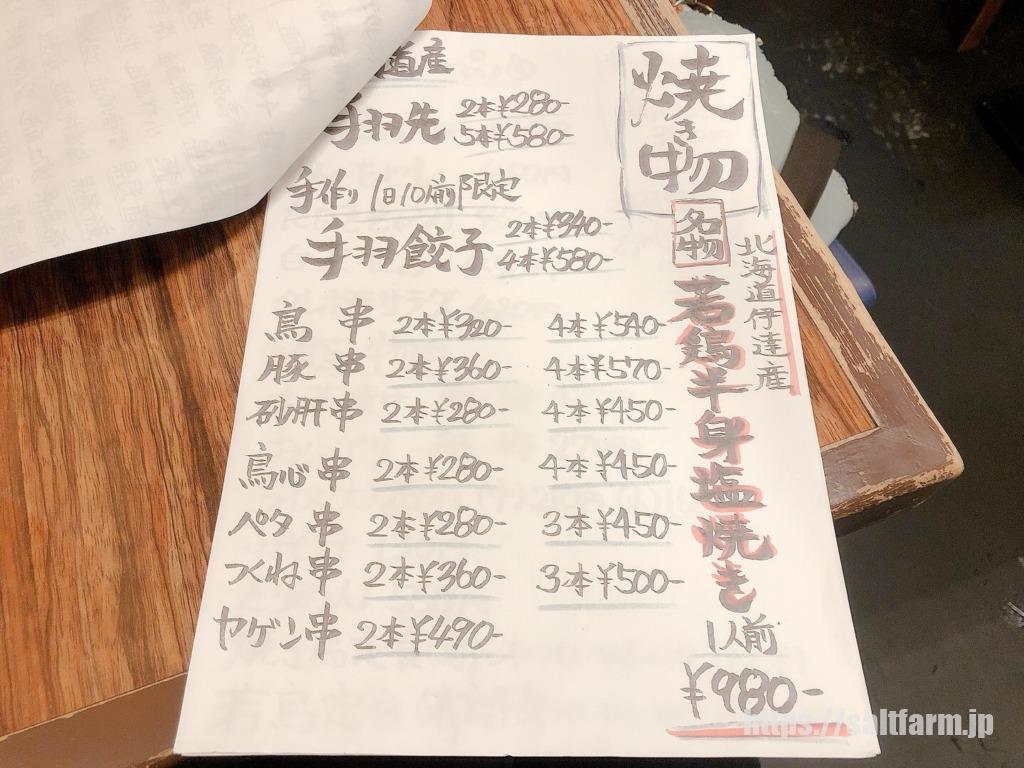 焼き物
名物
北海道伊達産
若鶏半身塩焼き
1人前
¥980-
道産
手羽先 2本¥280-
5本¥580-
手作り 1日10前限定
手羽餃子 2本¥340-
4本¥580-
鳥串 2本¥320- 4本¥540-
豚串 2本¥360- 4本¥570-
砂肝串 2本¥280- 4本¥450-
鳥心串 2本¥280- 4本¥450-
ペタ串 2本¥280- 3本¥450-
つくね串 2本¥360- 3本¥500-
ヤゲン串 2本¥490-
https://saltfarm.jp